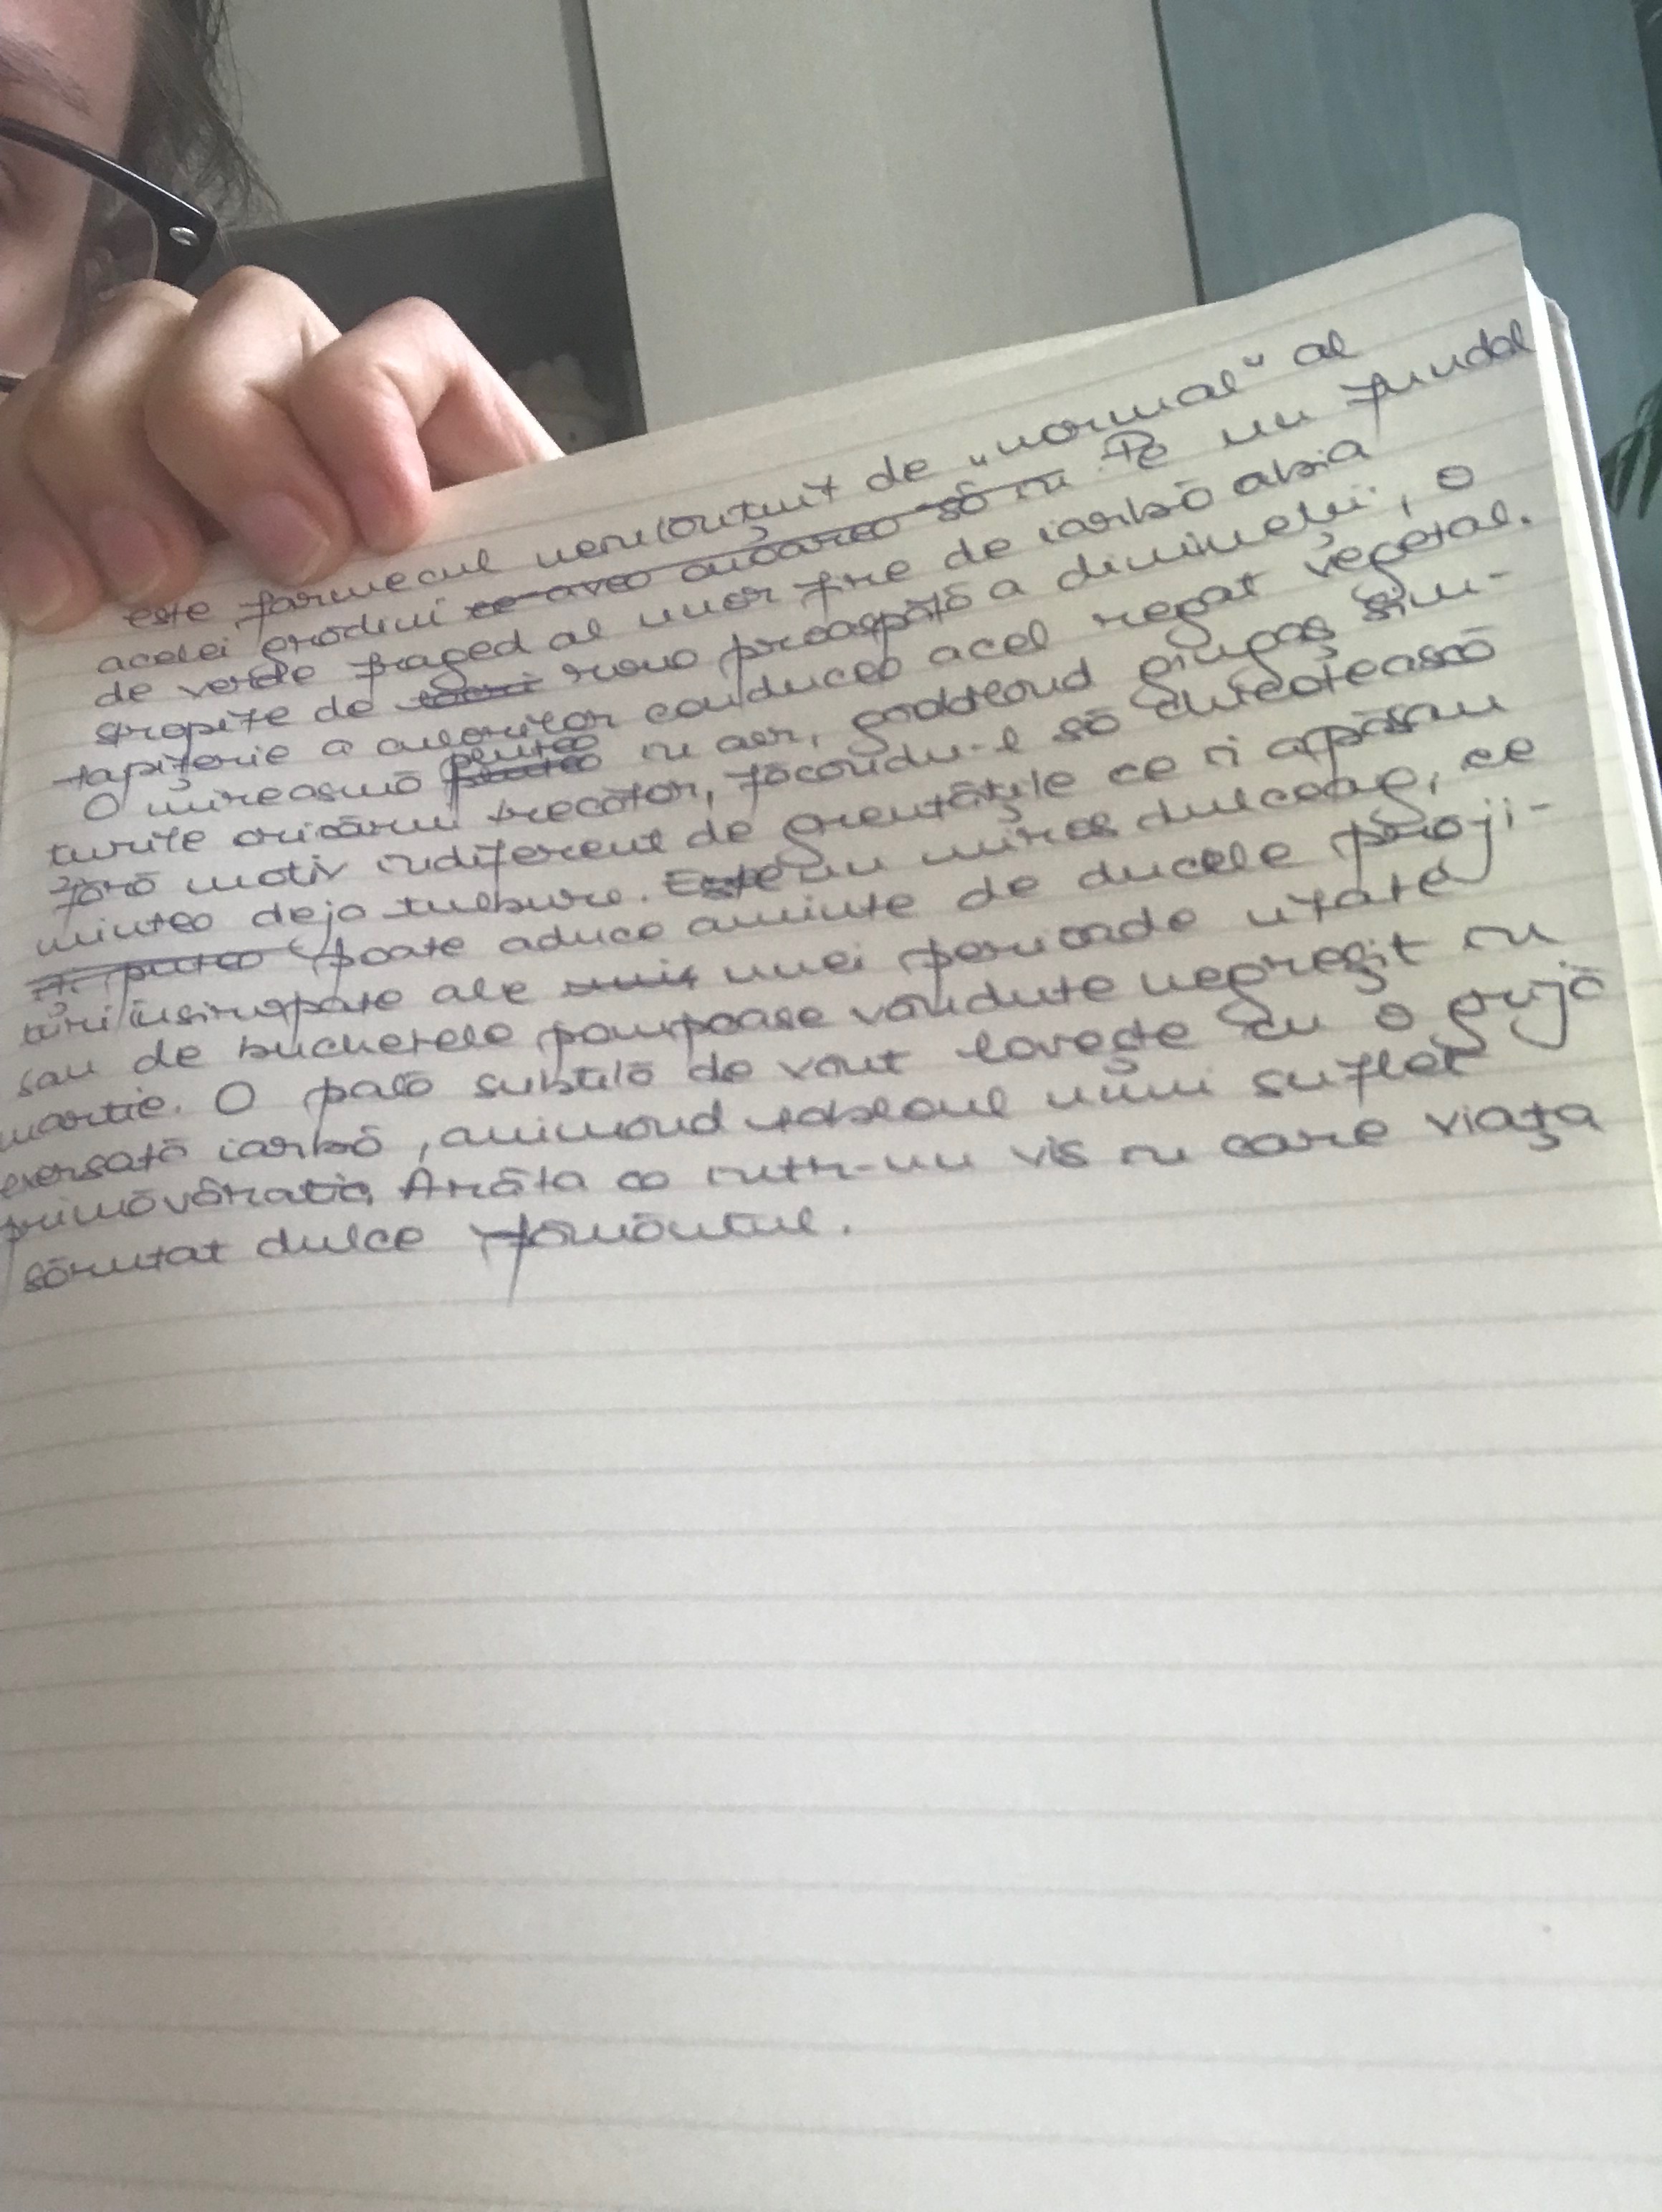 este farmecul neîncontuit de „normal" al
acelei grădini ce avea onoarea să în. Pe un fundal
de verde fraged al unor fire de iarbă abia
stropite de roua proaspătă a dimineții, o
tapițerie a culorilor conducea acel regat vegetal.
O mireasmă plutea în aer, gâdilând gingaș sim-
țurile oricărui trecător, făcându-l să chicotească
fără motiv indiferent de greutățile ce îi apăsau
mintea deja tulbure. Este un miros dulceag, ce
îți putea poate aduce aminte de dulcele prăji-
turi însiropate ale unei perioade uitate
sau de buchetele pompoase vândute negreșit în
martie. O pală subtilă de vânt lovește cu o grijă
exersată iarba, animând tabloul unui suflet
primăvăratic. Arăta ca într-un vis în care viața
sărutat dulce pământul.